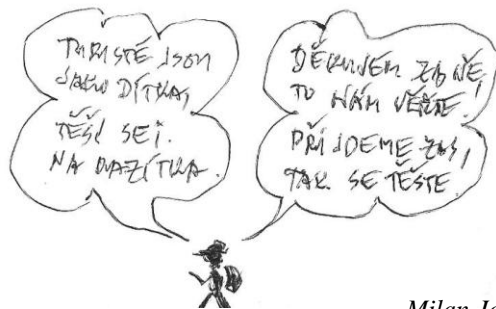 TURISTÉ JSOU
JAKO DÍTKA,
TĚŠÍ SE I
NA RAZÍTKA.
DĚKUJEM ZA NĚ,
TO NÁM VĚŘTE.
PŘIJDEME ZAS,
TAK SE TĚŠTE.
Milan